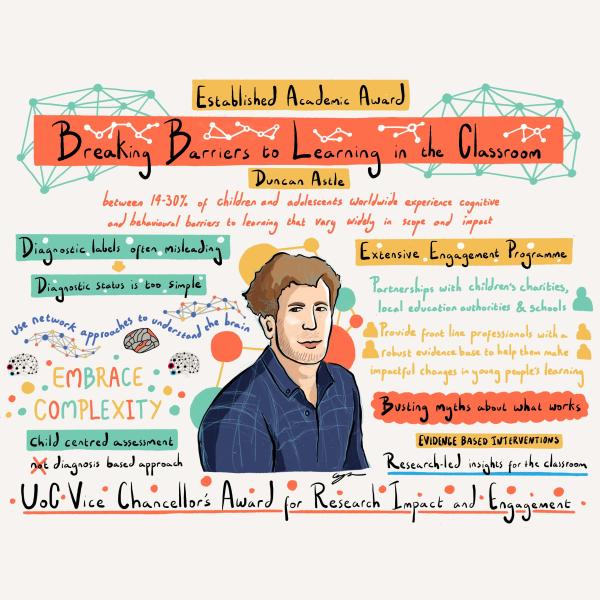 Established Academic Award
Breaking Barriers to Learning in the Classroom
Duncan Astle
between 14-30% of children and adolescents worldwide experience cognitive
and behavioural barriers to learning that vary widely in scope and impact
Diagnostic labels often misleading
Diagnostic status is too simple
use network approaches to understand the brain
EMBRACE
COMPLEXITY
Child centred assessment
not diagnosis based approach
Extensive Engagement Programme
Partnerships with children's charities,
local education authorities & schools
Provide front line professionals with a
robust evidence base to help them make
impactful changes in young people's learning
Busting myths about what works
EVIDENCE BASED INTERVENTIONS
Research-led insights for the classroom
UoC Vice Chancellor's Award for Research Impact and Engagement